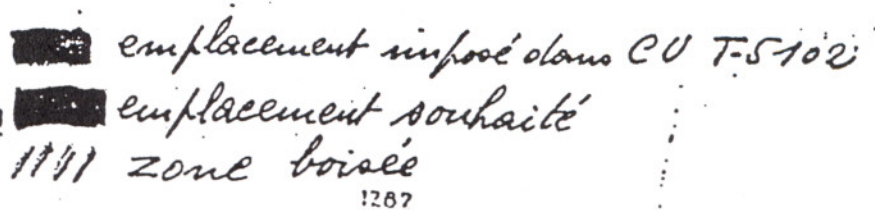 emplacement imposé dans CU T-5102
emplacement souhaité
zone boisée
1287